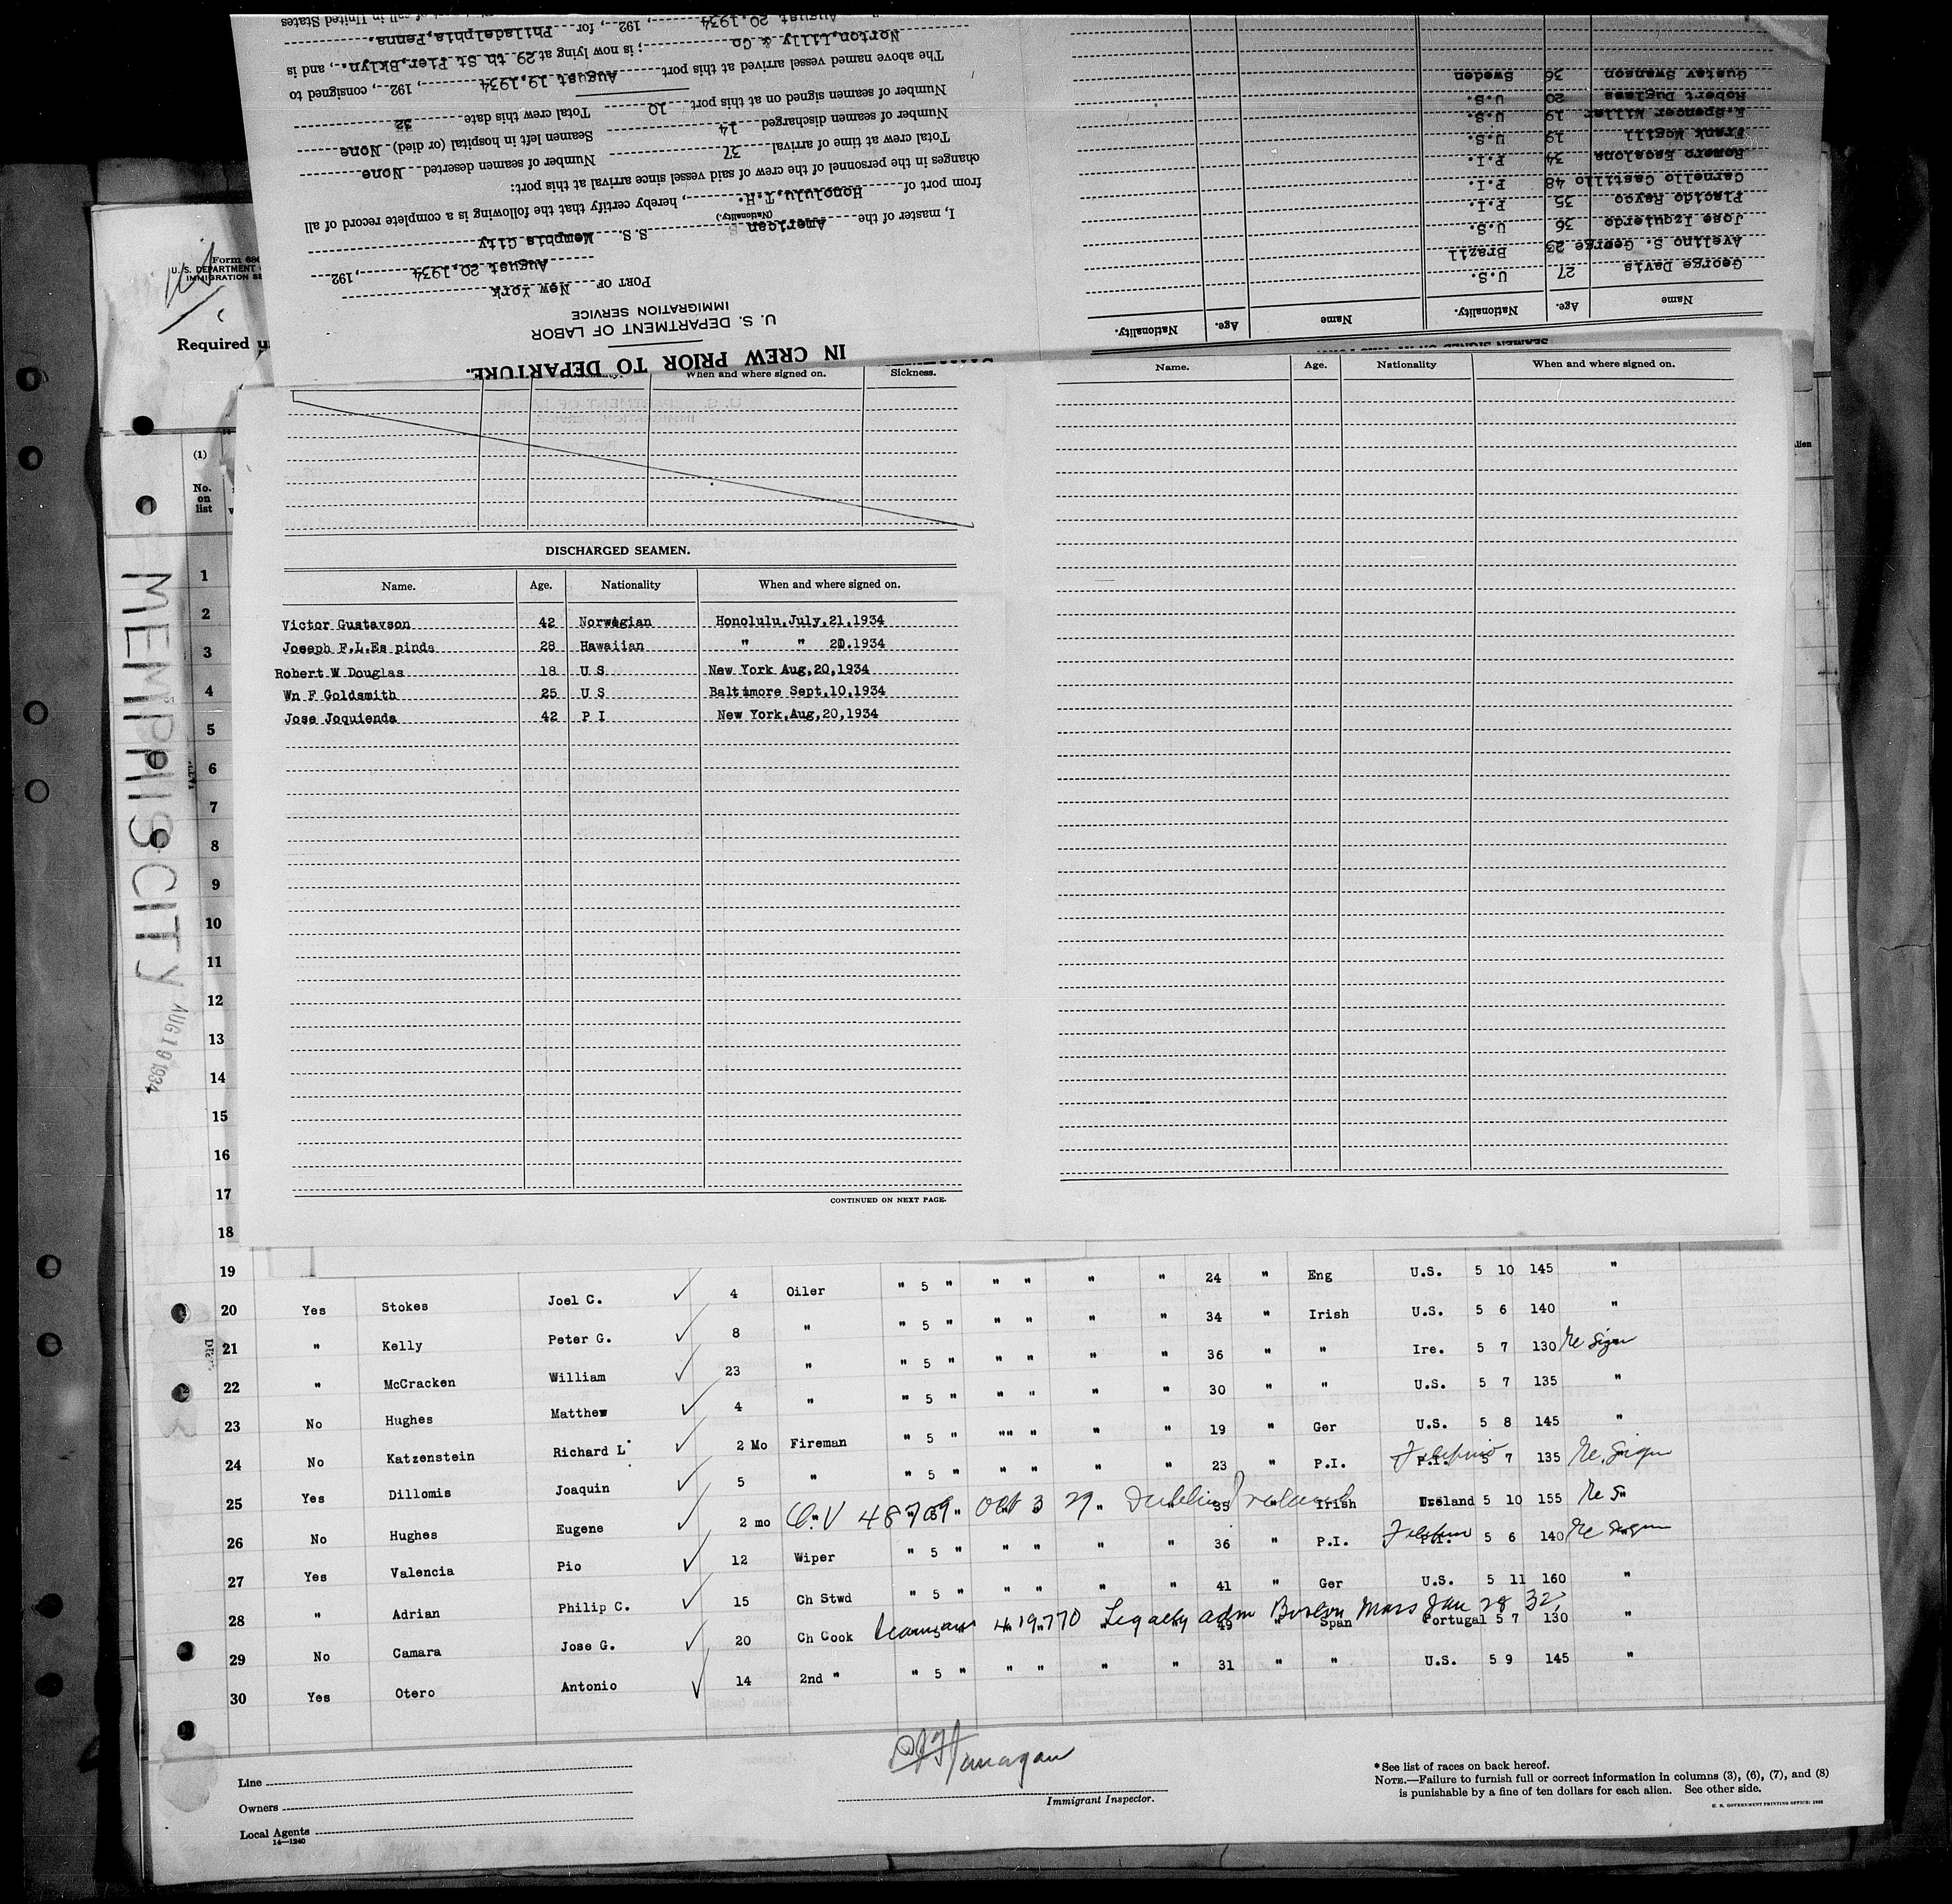 Form 680
U. S. DEPARTMENT
IMMIGRATION SE
Required u
(1)
No.
on
list
MEMPHIS CITY
AUG 19 1934
IN CREW PRIOR TO DEPARTURE.
U. S. DEPARTMENT OF LABOR
IMMIGRATION SERVICE
PORT OF New York
August 20,1934, 192
I, master of the American S. S. Memphis City
(Nationality.)
from port of Honolulu,T.H., hereby certify that the following is a complete record of all
changes in the personnel of the crew of said vessel since arrival at this port:
Total crew at time of arrival 37 Number of seamen deserted None
Number of seamen discharged 14 Seamen left in hospital (or died) None
Number of seamen signed on at this port 10 Total crew this date 32
The above named vessel arrived at this port August 19,1934, 192, consigned to
Norton,Lilly & Co; is now lying at 29 th St Pier,Bklyn., and is
August 20,1934, 192, for Philadelphia,Penna.
Name Age. Nationality. Name Age. Nationality.
George Davis 27 U.S.
Avelino S. George 23 Brazil
Jose Izquierdo 36 U.S.
Placido Rayco 35 P.I.
Carnello Castillo 48 P.I.
Romero Escalona 34 P.I.
Frank McGill 19 U.S.
E.Spencer Miller 19 U.S.
Robert Duglass 20 U.S.
Gustav Swanson 36 Sweden
When and where signed on. Sickness.
Name. Age. Nationality When and where signed on.
DISCHARGED SEAMEN.
Name. Age. Nationality When and where signed on.
Victor Gustavson 42 Norwegian Honolulu,July,21,1934
Joseph F.L.Es pinda 28 Hawaiian " " 20.1934
Robert W Douglas 18 U S New York Aug,20,1934
Wn F Goldsmith 25 U S Baltimore Sept,10,1934
Jose Joquienda 42 P I New York,Aug,20,1934
CONTINUED ON NEXT PAGE.
1
2
3
4
5
6
7
8
9
10
11
12
13
14
15
16
17
18
19
20 Yes Stokes Joel C. 4 Oiler " 5 " " " " " 24 " Eng U.S. 5 10 145 "
21 " Kelly Peter G. 8 " " 5 " " " " " 34 " Irish U.S. 5 6 140 "
22 " McCracken William 23 " " 5 " " " " " 36 " " Ire. 5 7 130 Re Sign
23 No Hughes Matthew 4 " " 5 " " " " " 30 " " U.S. 5 7 135 "
24 No Katzenstein Richard L 2 Mo Fireman " 5 " "" " " " 19 " Ger U.S. 5 8 145 "
25 Yes Dillomis Joaquin 5 " " 5 " " " " " 23 " P.I. P.I. 5 7 135 Re Sign
26 No Hughes Eugene 2 mo C.V 48709 Oct 3 29 Dublin Ireland 35 Irish Ireland 5 10 155 Re S
27 Yes Valencia Pio 12 Wiper " 5 " " " " " 36 " P.I. P.I. 5 6 140 Re Sign
28 " Adrian Philip C. 15 Ch Stwd " 5 " " " " " 41 " Ger U.S. 5 11 160 "
29 No Camara Jose G. 20 Ch Cook 419770 Legally adm Boston Mass Jan 28 32 49 Span Portugal 5 7 130 "
30 Yes Otero Antonio 14 2nd " " 5 " " " " " 31 " " U.S. 5 9 145 "
Line
Owners
Local Agents
14—1240
Immigrant Inspector.
*See list of races on back hereof.
NOTE.—Failure to furnish full or correct information in columns (3), (6), (7), and (8)
is punishable by a fine of ten dollars for each alien. See other side.
U. S. GOVERNMENT PRINTING OFFICE: 1932